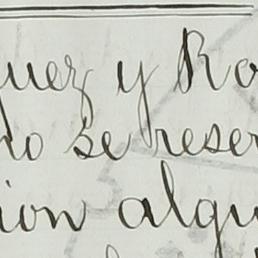 quez y Ro
no se reser
ion algu